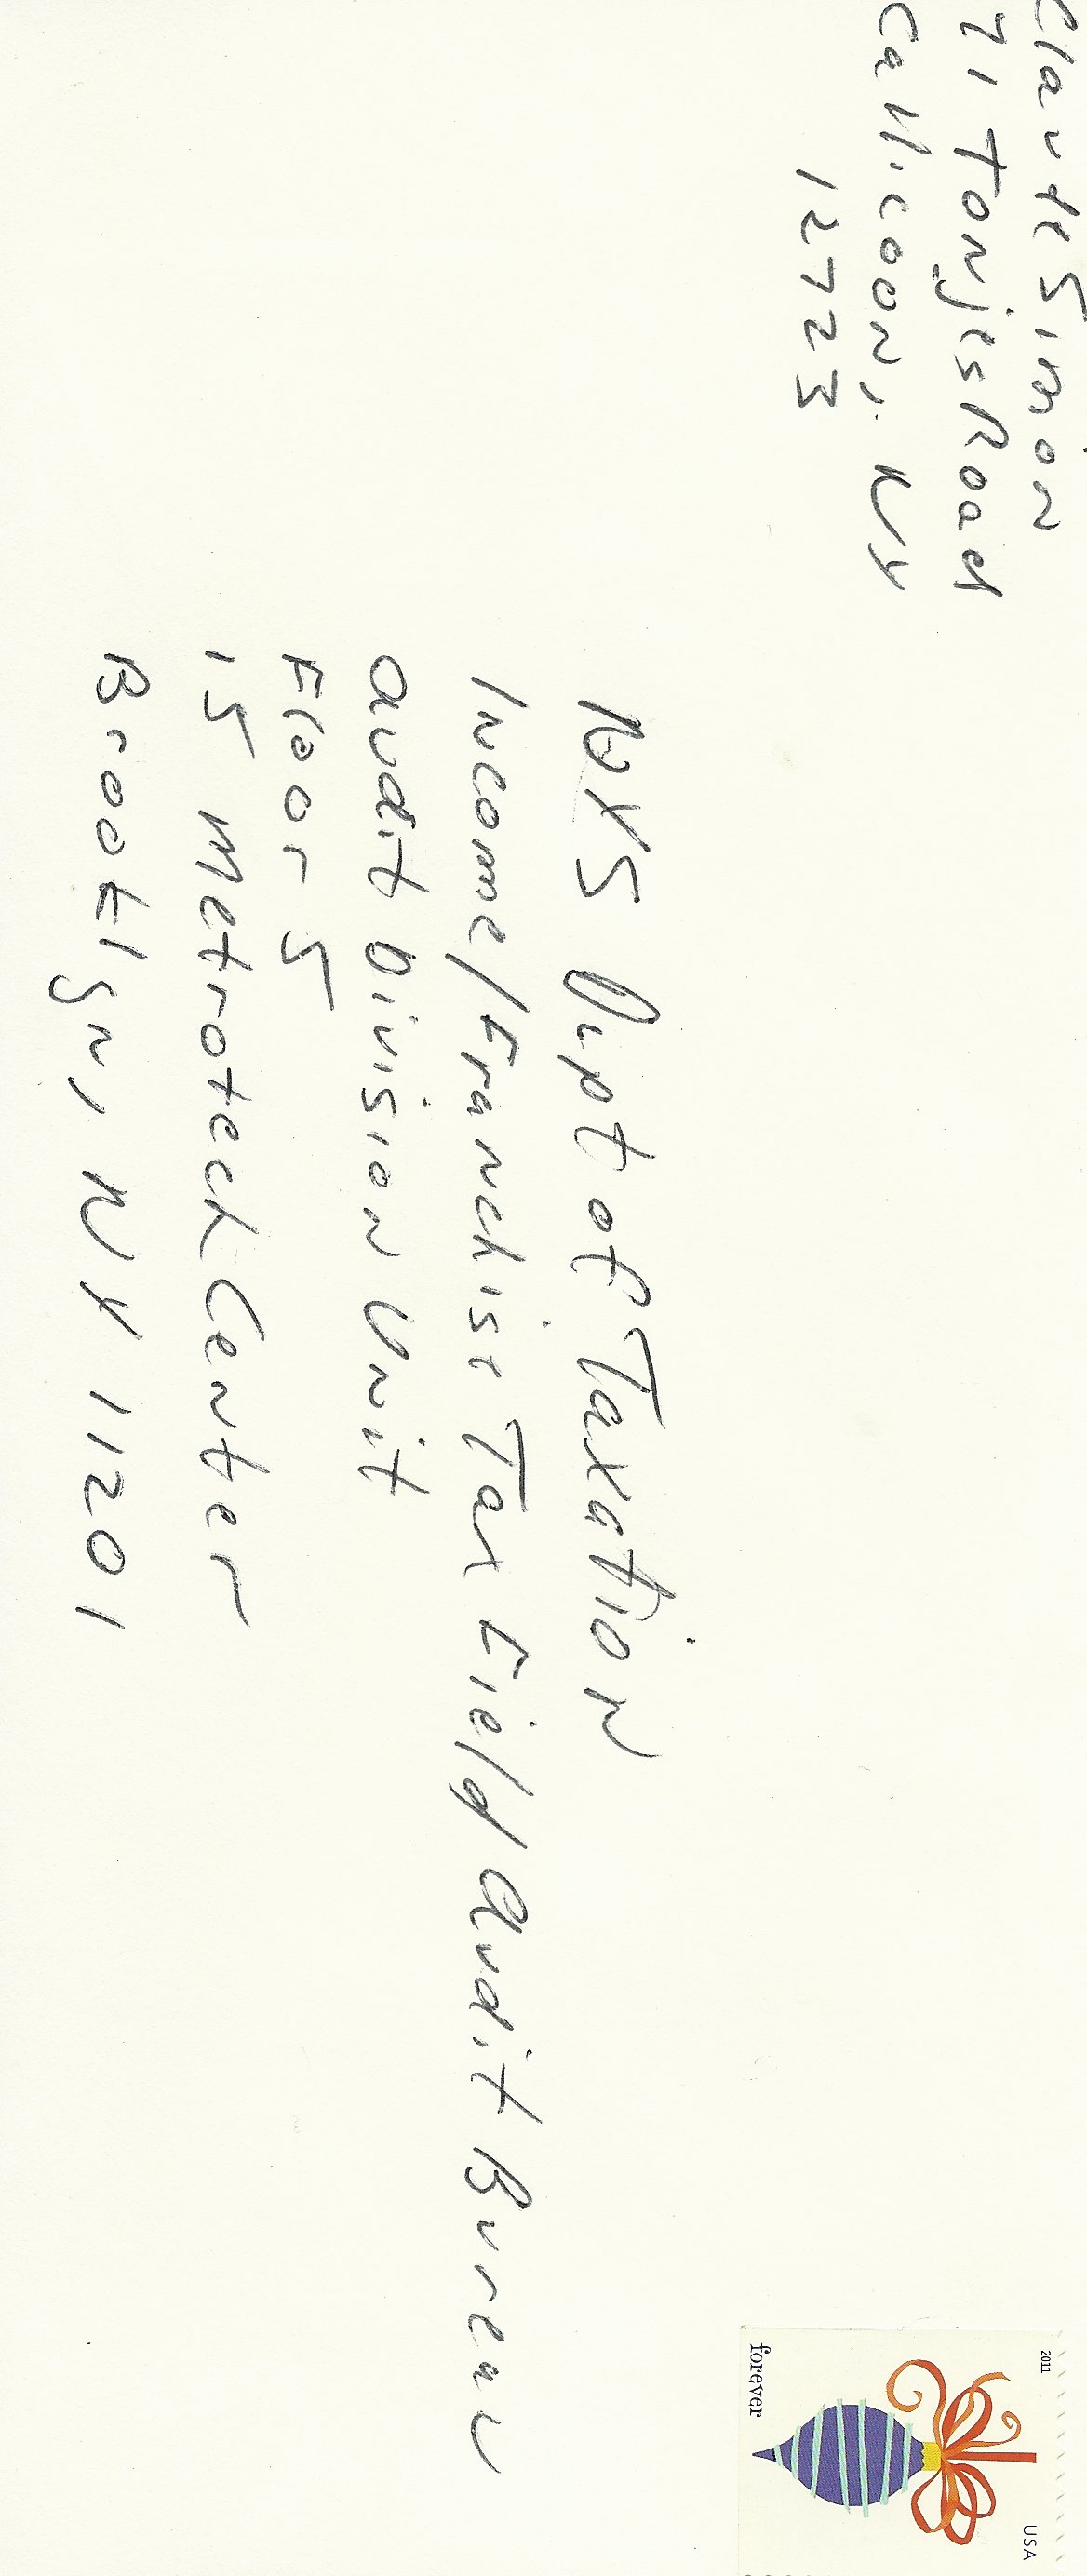 Claude Simon
71 Tonjes Road
Callicoon, NY
12723
2011
USA
forever
NYS Dept of Taxation
Income/Franchise Tax Field Audit Bureau
Audit Division Unit
Floor 5
15 Metrotech Center
Brooklyn, NY 11201